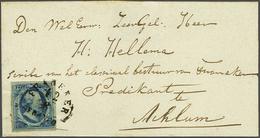 Den Wel Eerw. Zeer Gel. Heer
H. Hellema
Scriba van het classicaal bestuur van Franeker
Predikant te
Achlum